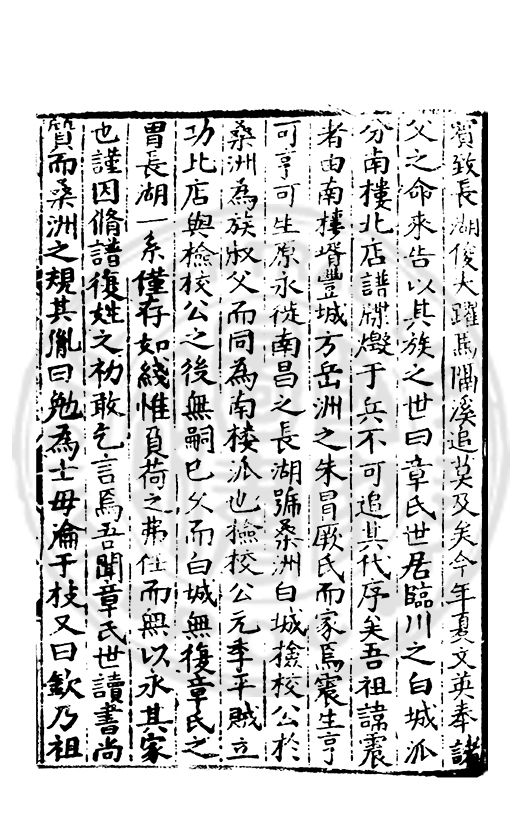 賓致長湖俊大躍馬關溪追莫及矣今年夏文英奉諸
父之命來告以其族之世曰章氏世居臨川之白城派
分南樓北店譜牒燬于兵不可追其代序矣吾祖諱震
者由南樓壻豐城方岳洲之朱冒厥氏而家焉震生亨
可亨可生原永徙南昌之長湖號桑洲白城撿校公於
桑洲為族叔父而同為南樓派也撿校公元季平賊立
功比店與檢校公之後無嗣已久而白城無復章氏之
胄長湖一系僅存如綫惟負荷之弗任而無以永其家
也謹因脩譜復姓之初敢乞言焉吾聞章氏世讀書尚
質而桑洲之規其胤曰勉為士毋淪于技又曰欽乃祖